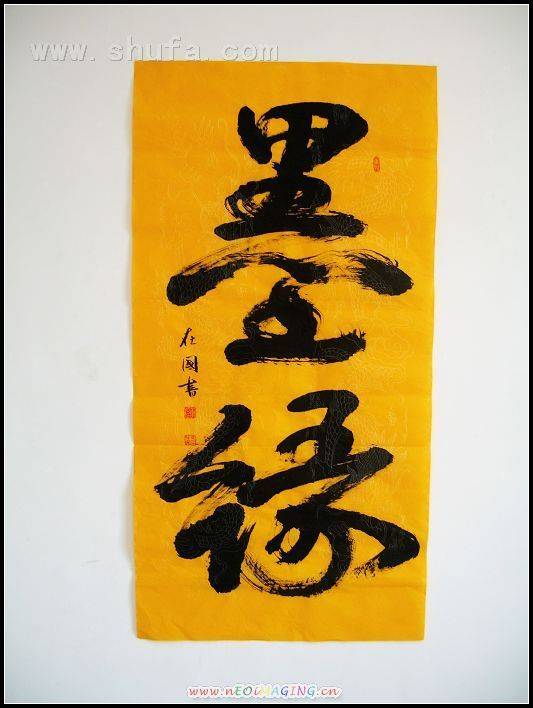 www.shufa.com
墨缘
在國书
www.nEOiMAGING.cn